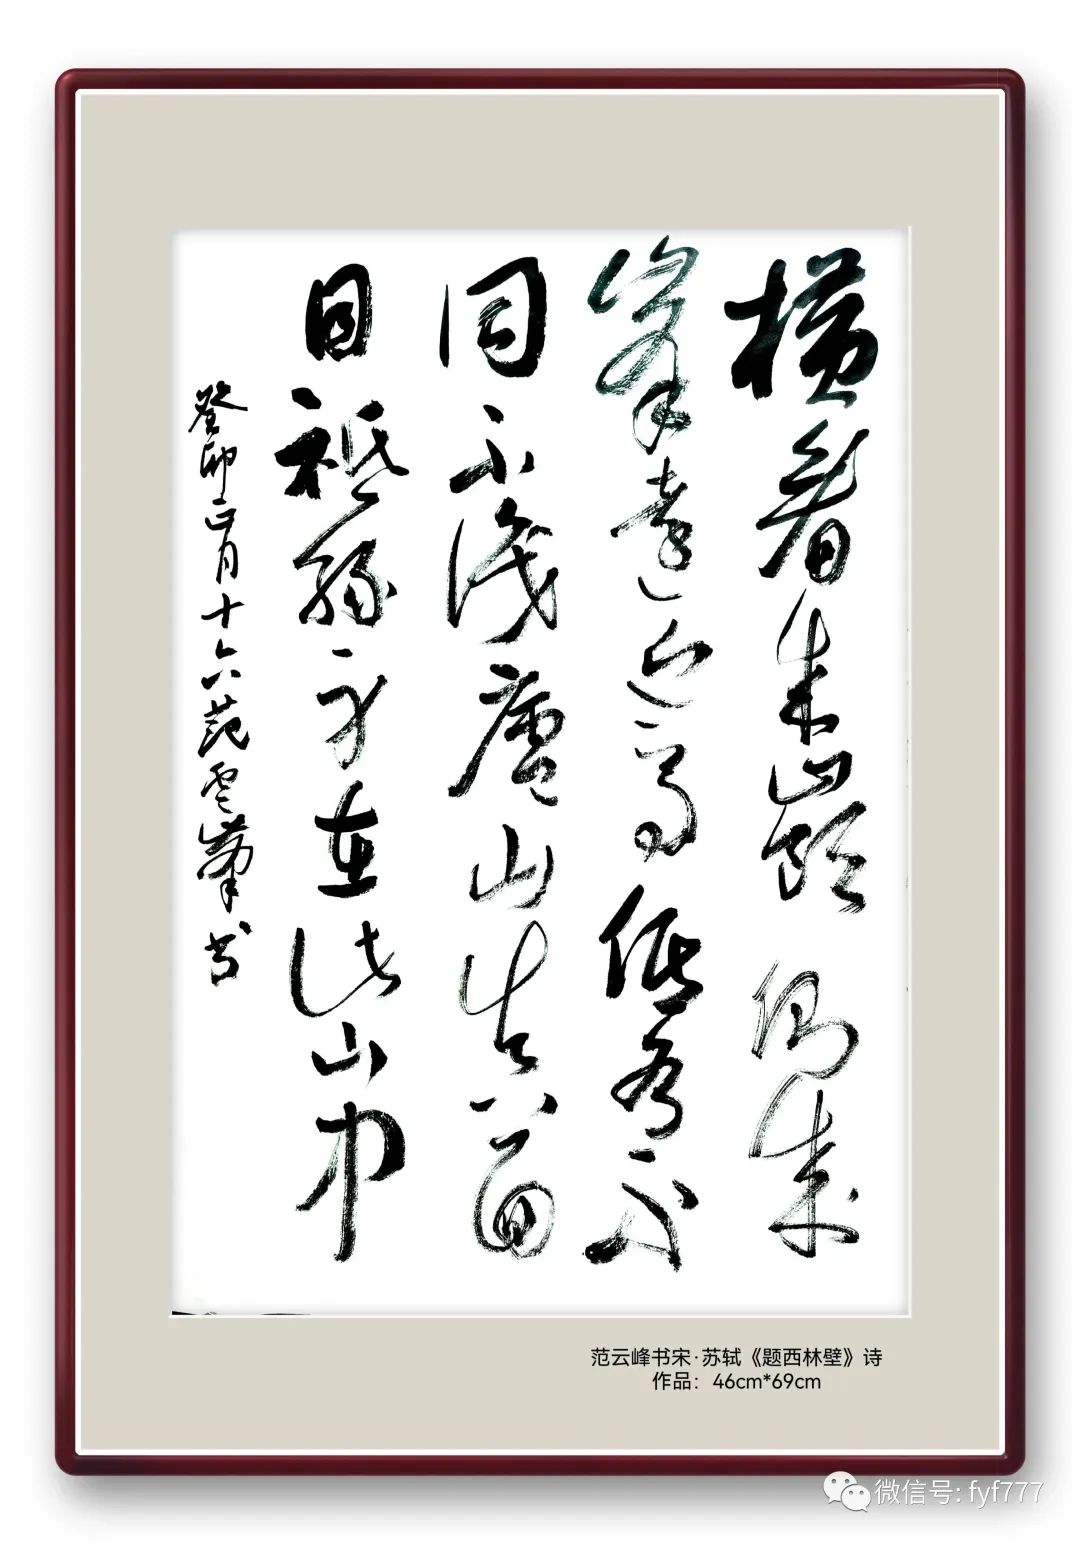 橫看成嶺側成
峰遠近高低各不
同不識廬山真面
目祇緣身在此山中
癸卯正月十六范雲峯书
范云峰书宋·苏轼《题西林壁》诗
作品：46cm*69cm
微信号: fyf777